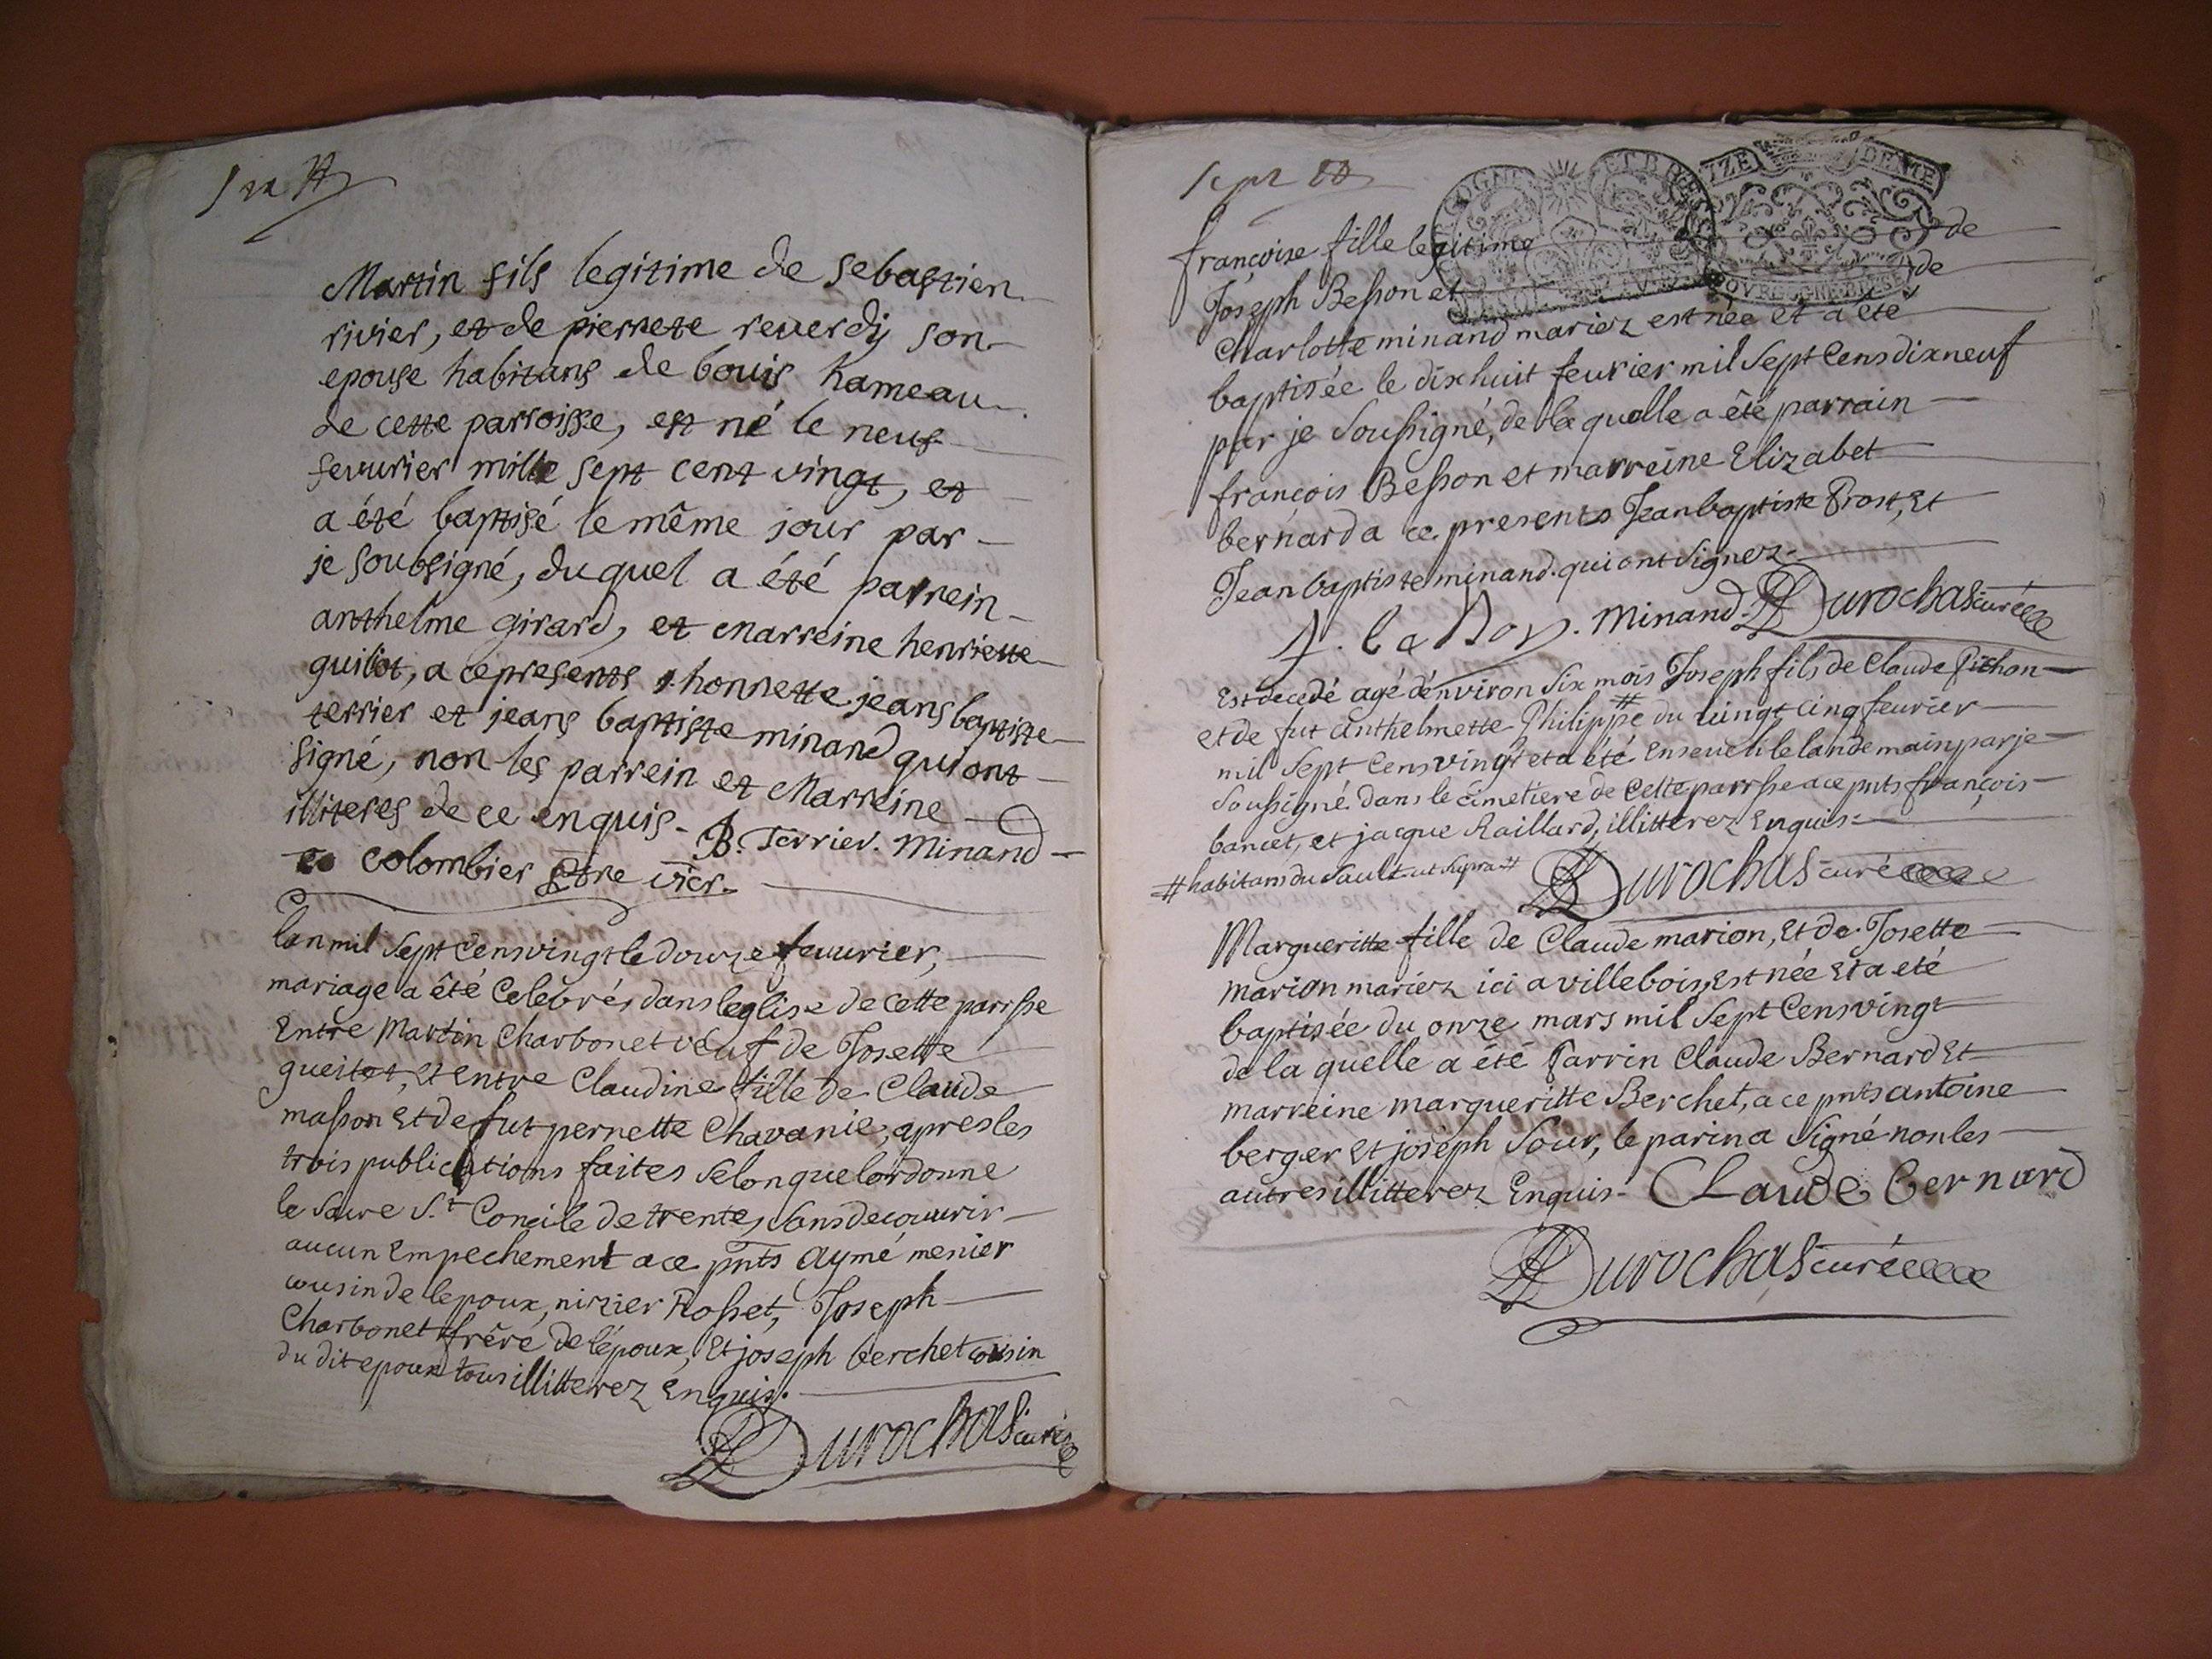 Martin fils legitime de sebastien
rivier, et de pierrete reuerdy son
epouse habitans de bouis hameau
de cette parroisse, est né le neuf
feuurier mille sept cent vingt, et
a été baptisé le même jour par
je soubsigné, duquel a été parrein
anthelme girard, et marreine henriette
guillot, a ce presents honnette jeans baptiste
terrier et jeans baptiste minand qui ont
signé, non les parrein et Marreine
illiteres de ce enquis. B. Terrier. Minand
colombier ptre vicr.
lan mil Sept Cens vingt le douze feuurier,
mariage a êté Celebrés dans leglise de cette parrsse
Entre Martin Charbonet véuf de Josette
et entre Claudine fille de Claude
masson Et de fut pernette Chavanie, apres les
trois publications faites Selon que lordonne
le Sacre St. Concile de trente, sans decouurir
aucun Empechement a ce pnts Aymé menier
cousin de lepoux, nizier Rosset, Joseph
Charbonet frêre de lépoux, Et joseph berchet cousin
du dit epoux tous illitterez Enquis.
Durochas curé
Sept
COGNE ET B
TZE DENIE
françoise fille legitime de
Joseph Besson et de
Charlotte minand mariez est née et a été
baptisée le dix huit feurier mil Sept Cens dix neuf
par je Soussigné, de la quelle a êté parrain
françois Besson et marreine Elizabet
bernard a ce presents Jean baptiste Prost, Et
Jean baptiste minand. qui ont Signez.
Minand Durochas curé
Est decedé agé dénviron Six mois Joseph fils de Claude Pithon
et de fut Anthelmette Philippe # du uingt cinq feurier
mil Sept Cens vingt et a été Enseueli le landemain par je
Soussigné dans le cimetiere de Cette parrsse a ce pnts françois
bancet, et jacque Raillard, illitterez Enquis.
# habitans du Sault ut Supra # Durochas curé
Margueritte fille de Claude marion, Et de Josette
marion mariez ici a villebois, Est née Et a eté
baptisée du onze mars mil Sept Cens vingt
de la quelle a été Parrin Claude Bernard Et
marreine margueritte Berchet, a ce pnts antoine
berger Et joseph Sour, le parin a Signé non les
autres illitterez Enquis. CLaude bernard
Durochas curé